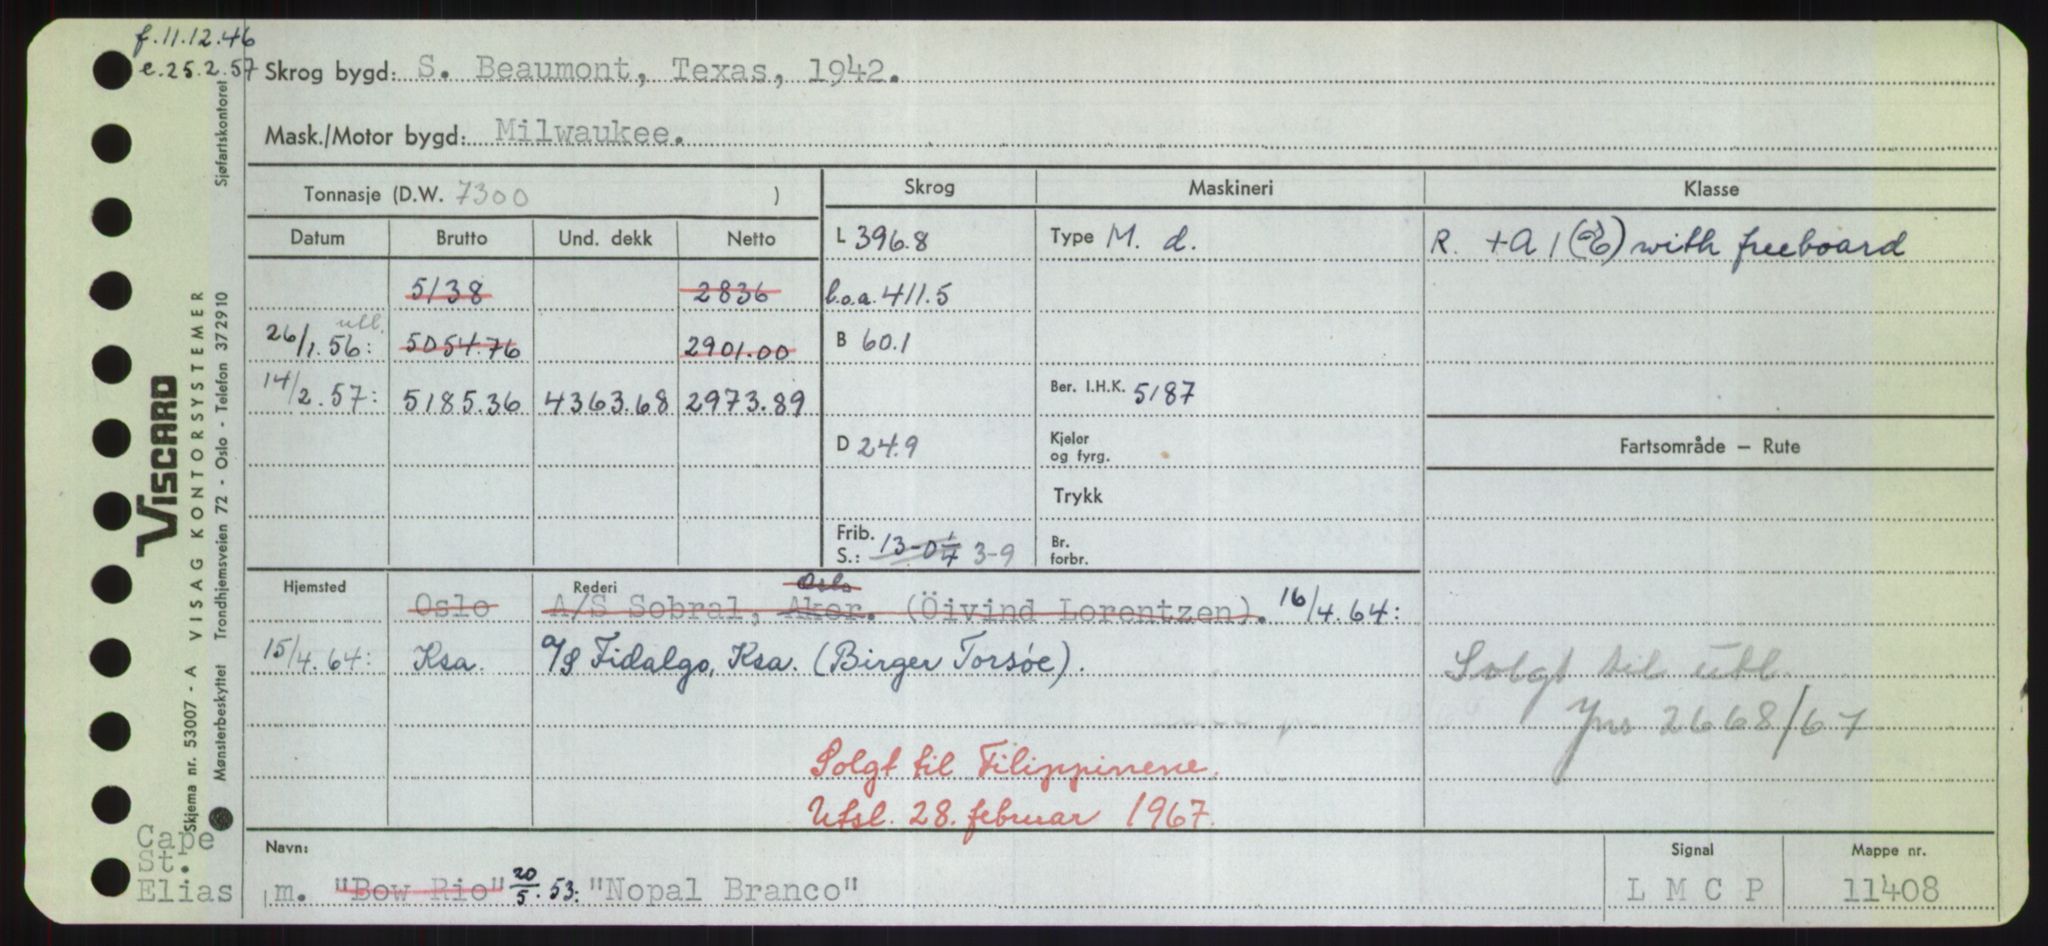 f.11.12.46
e.25.2.57
Skrog bygd: S. Beaumont, Texas, 1942.
Mask./Motor bygd: Milwaukee.
Tonnasje (D.W. 7300 )
Skrog
Maskineri
Klasse
Datum Brutto Und. dekk Netto
L 396.8
Type M. d.
R. +A 1 with freeboard
5138 2836
l.o.a. 411.5
utl.
26/1.56: 5054.76 2901.00
B 60.1
14/2.57: 5185.36 4363.68 2973.89
Ber. I.H.K. 5187
D 24.9
Kjeler og fyrg.
Fartsområde – Rute
Trykk
Frib. S.: 13-0 1/4 3-9
Br. forbr.
Hjemsted
Rederi
Oslo
Oslo A/S Sobral, Aker. (Öivind Lorentzen). 16/4.64:
15/4.64: Ksa. A/S Fidalgo, Ksa. (Birger Torsøe).
Solgt til utl.
Jnr 2668/67
Solgt til Filippinene.
Utsl. 28. februar 1967.
Navn:
m. "Bow Rio" 20/5.53: "Nopal Branco"
Signal
L M C P
Mappe nr.
11408
Cape
St.
Elias
VISCARD
VISAG KONTORSYSTEMER
Skjema nr. 53007 - A
Mønsterbeskyttet Trondhjemsveien 72 - Oslo - Telefon 372910 Sjøfartskontoret